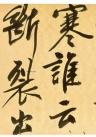 寒誰云
斷裂出